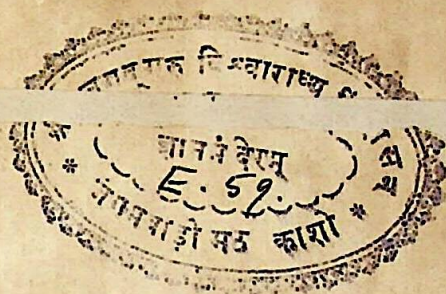 जगद्गुरु विश्वाराध्य
ज्ञानमंदिरम्
E. 59.
जंगमवाड़ी मठ काशी